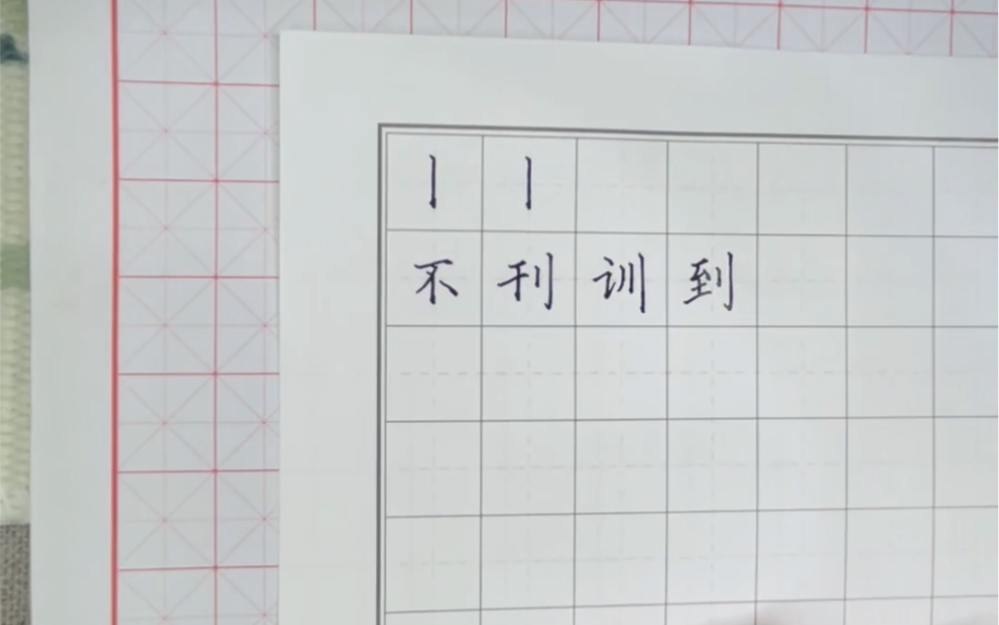 丨丨
不刊训到